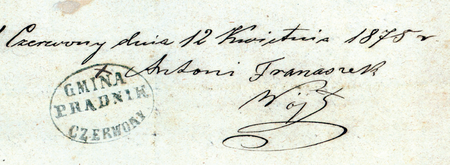 Czerwony dnia 12 Kwietnia 1878 r
Antoni Franaszek
Wójt
GMINA
PRADNIK
CZERWONY